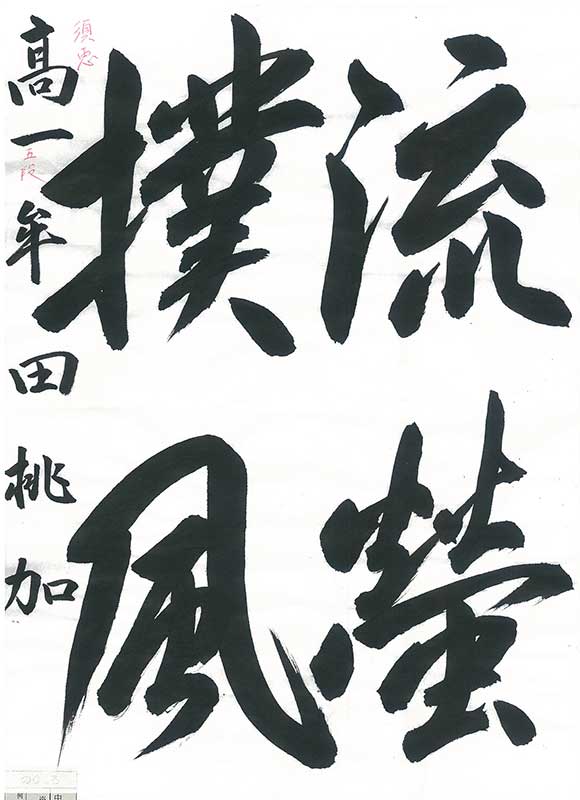 流螢
撲風
高一牟田桃加
須恵
五段